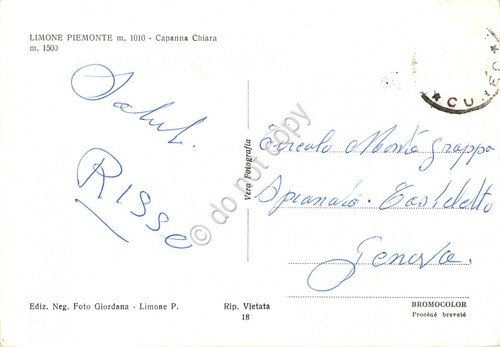 LIMONE PIEMONTE m. 1010 - Capanna Chiara
m. 1500
CUNEO
Saluti
Risso
Vera Fotografia
Circolo Monte Grappa
Spianata. Castelletto
Genova.
do not copy
Ediz. Neg. Foto Giordana - Limone P.
Rip. Vietata
18
BROMOCOLOR
Procédé breveté